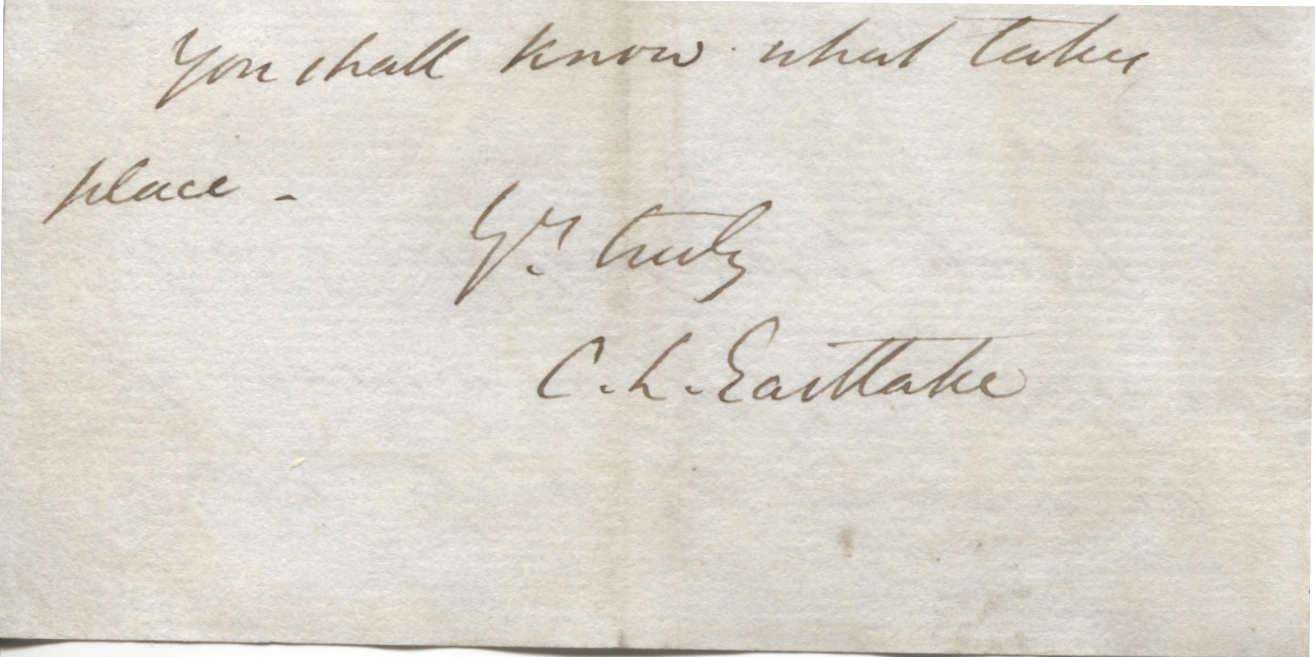 you shall know what takes
place -
Yrs. truly
C. L. Eastlake